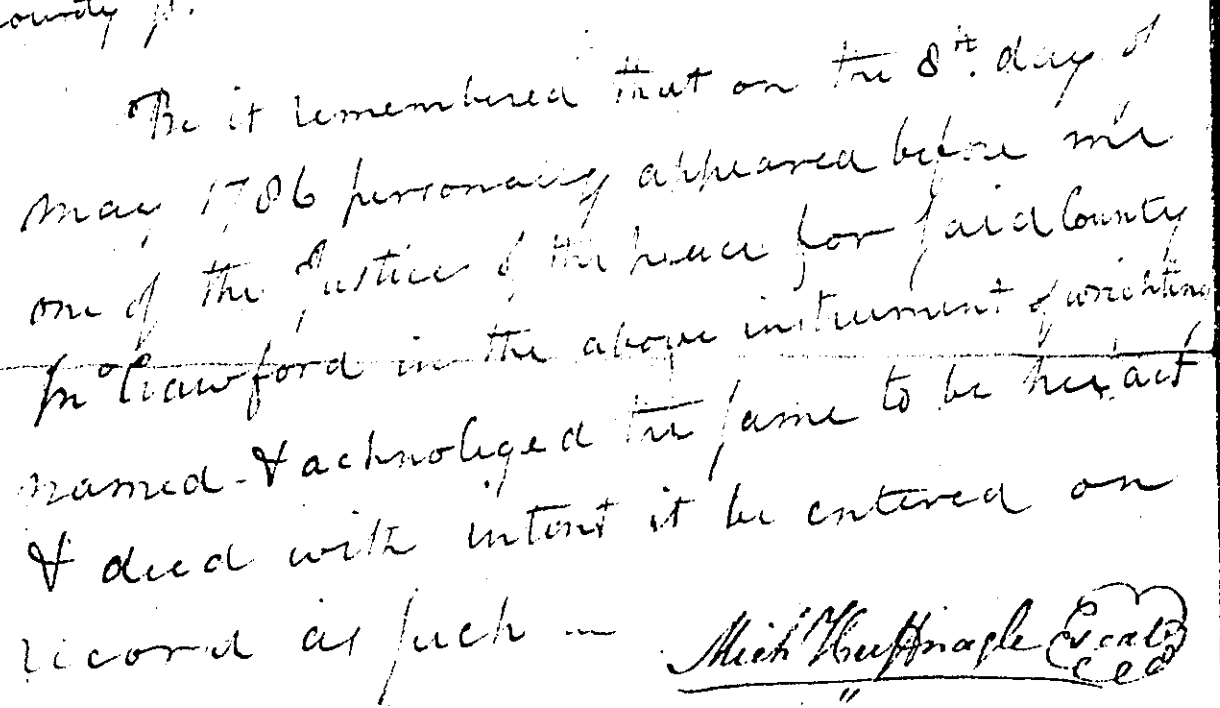 County ss.
Be it remembered that on the 8th. day of
May 1786 personaly appeared before me
one of the Justices of the peace for said County
Mo Crawford in the above instrument of wrighting
named - & acknoliged the same to be her act
& deed with intent it be entered on
record as such —
Mich Huffnagle